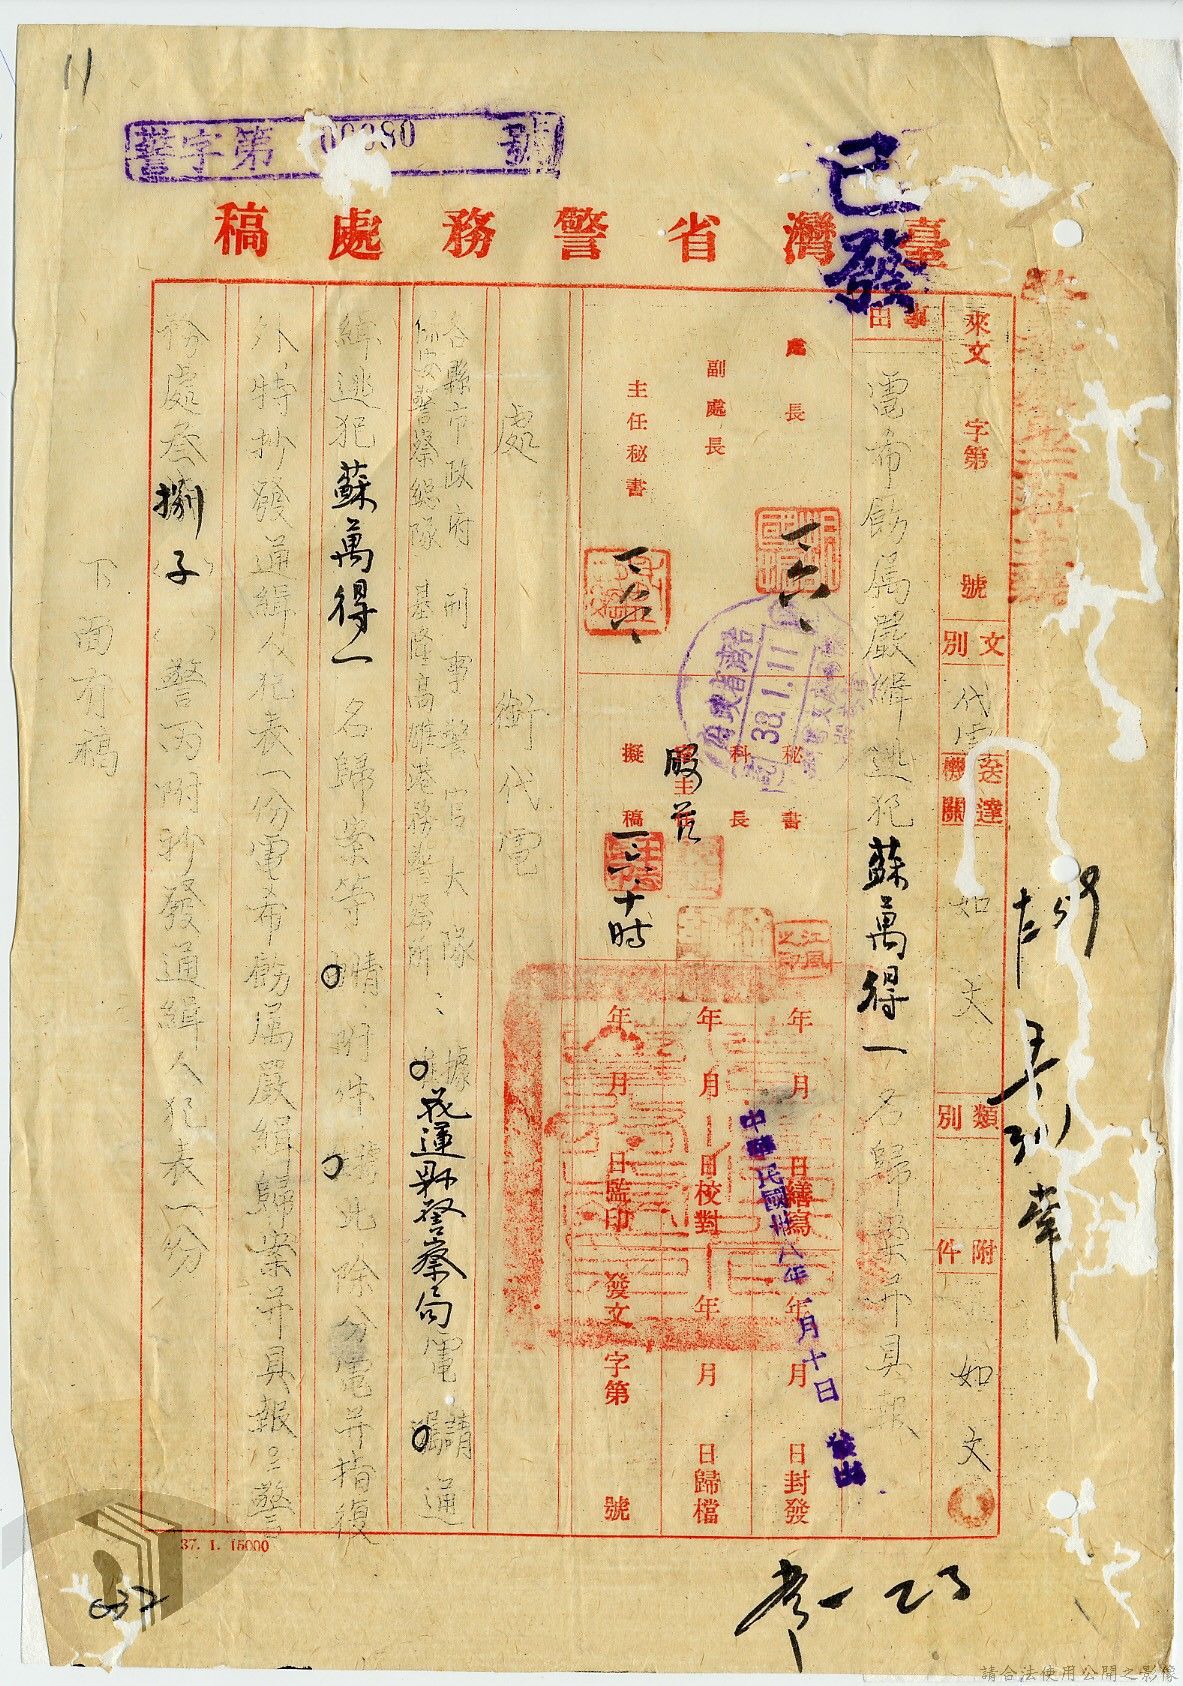 11
警字第 00380 號
已發
臺灣省警務處稿
來文 字第 號
文別 代電
送達機關 如文
類別
附件 如文
事由
電希飭属嚴緝逃犯蘇萬得一名歸案并具報
處長
副處長
主任秘書
秘書
科長
主任
擬稿
一.六
十時
38.1.11
江風之印
年 月 日繕寫
年 月 日校對
年 月 日監印
年 月 日封發
年 月 日歸檔
發文 字第 號
中華民國卅八年一月十日 發出
處銜代電
各縣市政府 刑事警官大隊
保安警察總隊 基隆高雄港務警察所
據
花蓮縣警察局電請通
緝逃犯蘇萬得一名歸案等情附件據此除分電并指復
外特抄發通緝人犯表一份電希飭属嚴緝歸案并具報警
務處叁捌子 警丙附抄發通緝人犯表一份
下面有稿
37. 1. 15000
032
請合法使用公開之影像